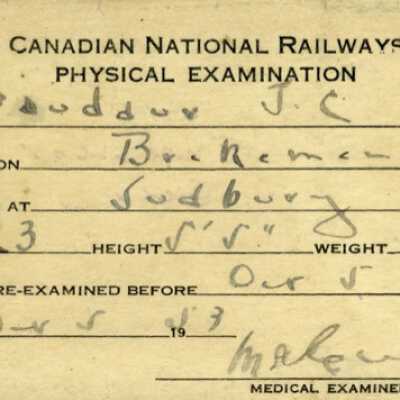 CANADIAN NATIONAL RAILWAYS
PHYSICAL EXAMINATION
J. C
ON Brakeman
AT Sudbury
3 HEIGHT 5'5" WEIGHT
RE-EXAMINED BEFORE 5
5 1953
MEDICAL EXAMINE